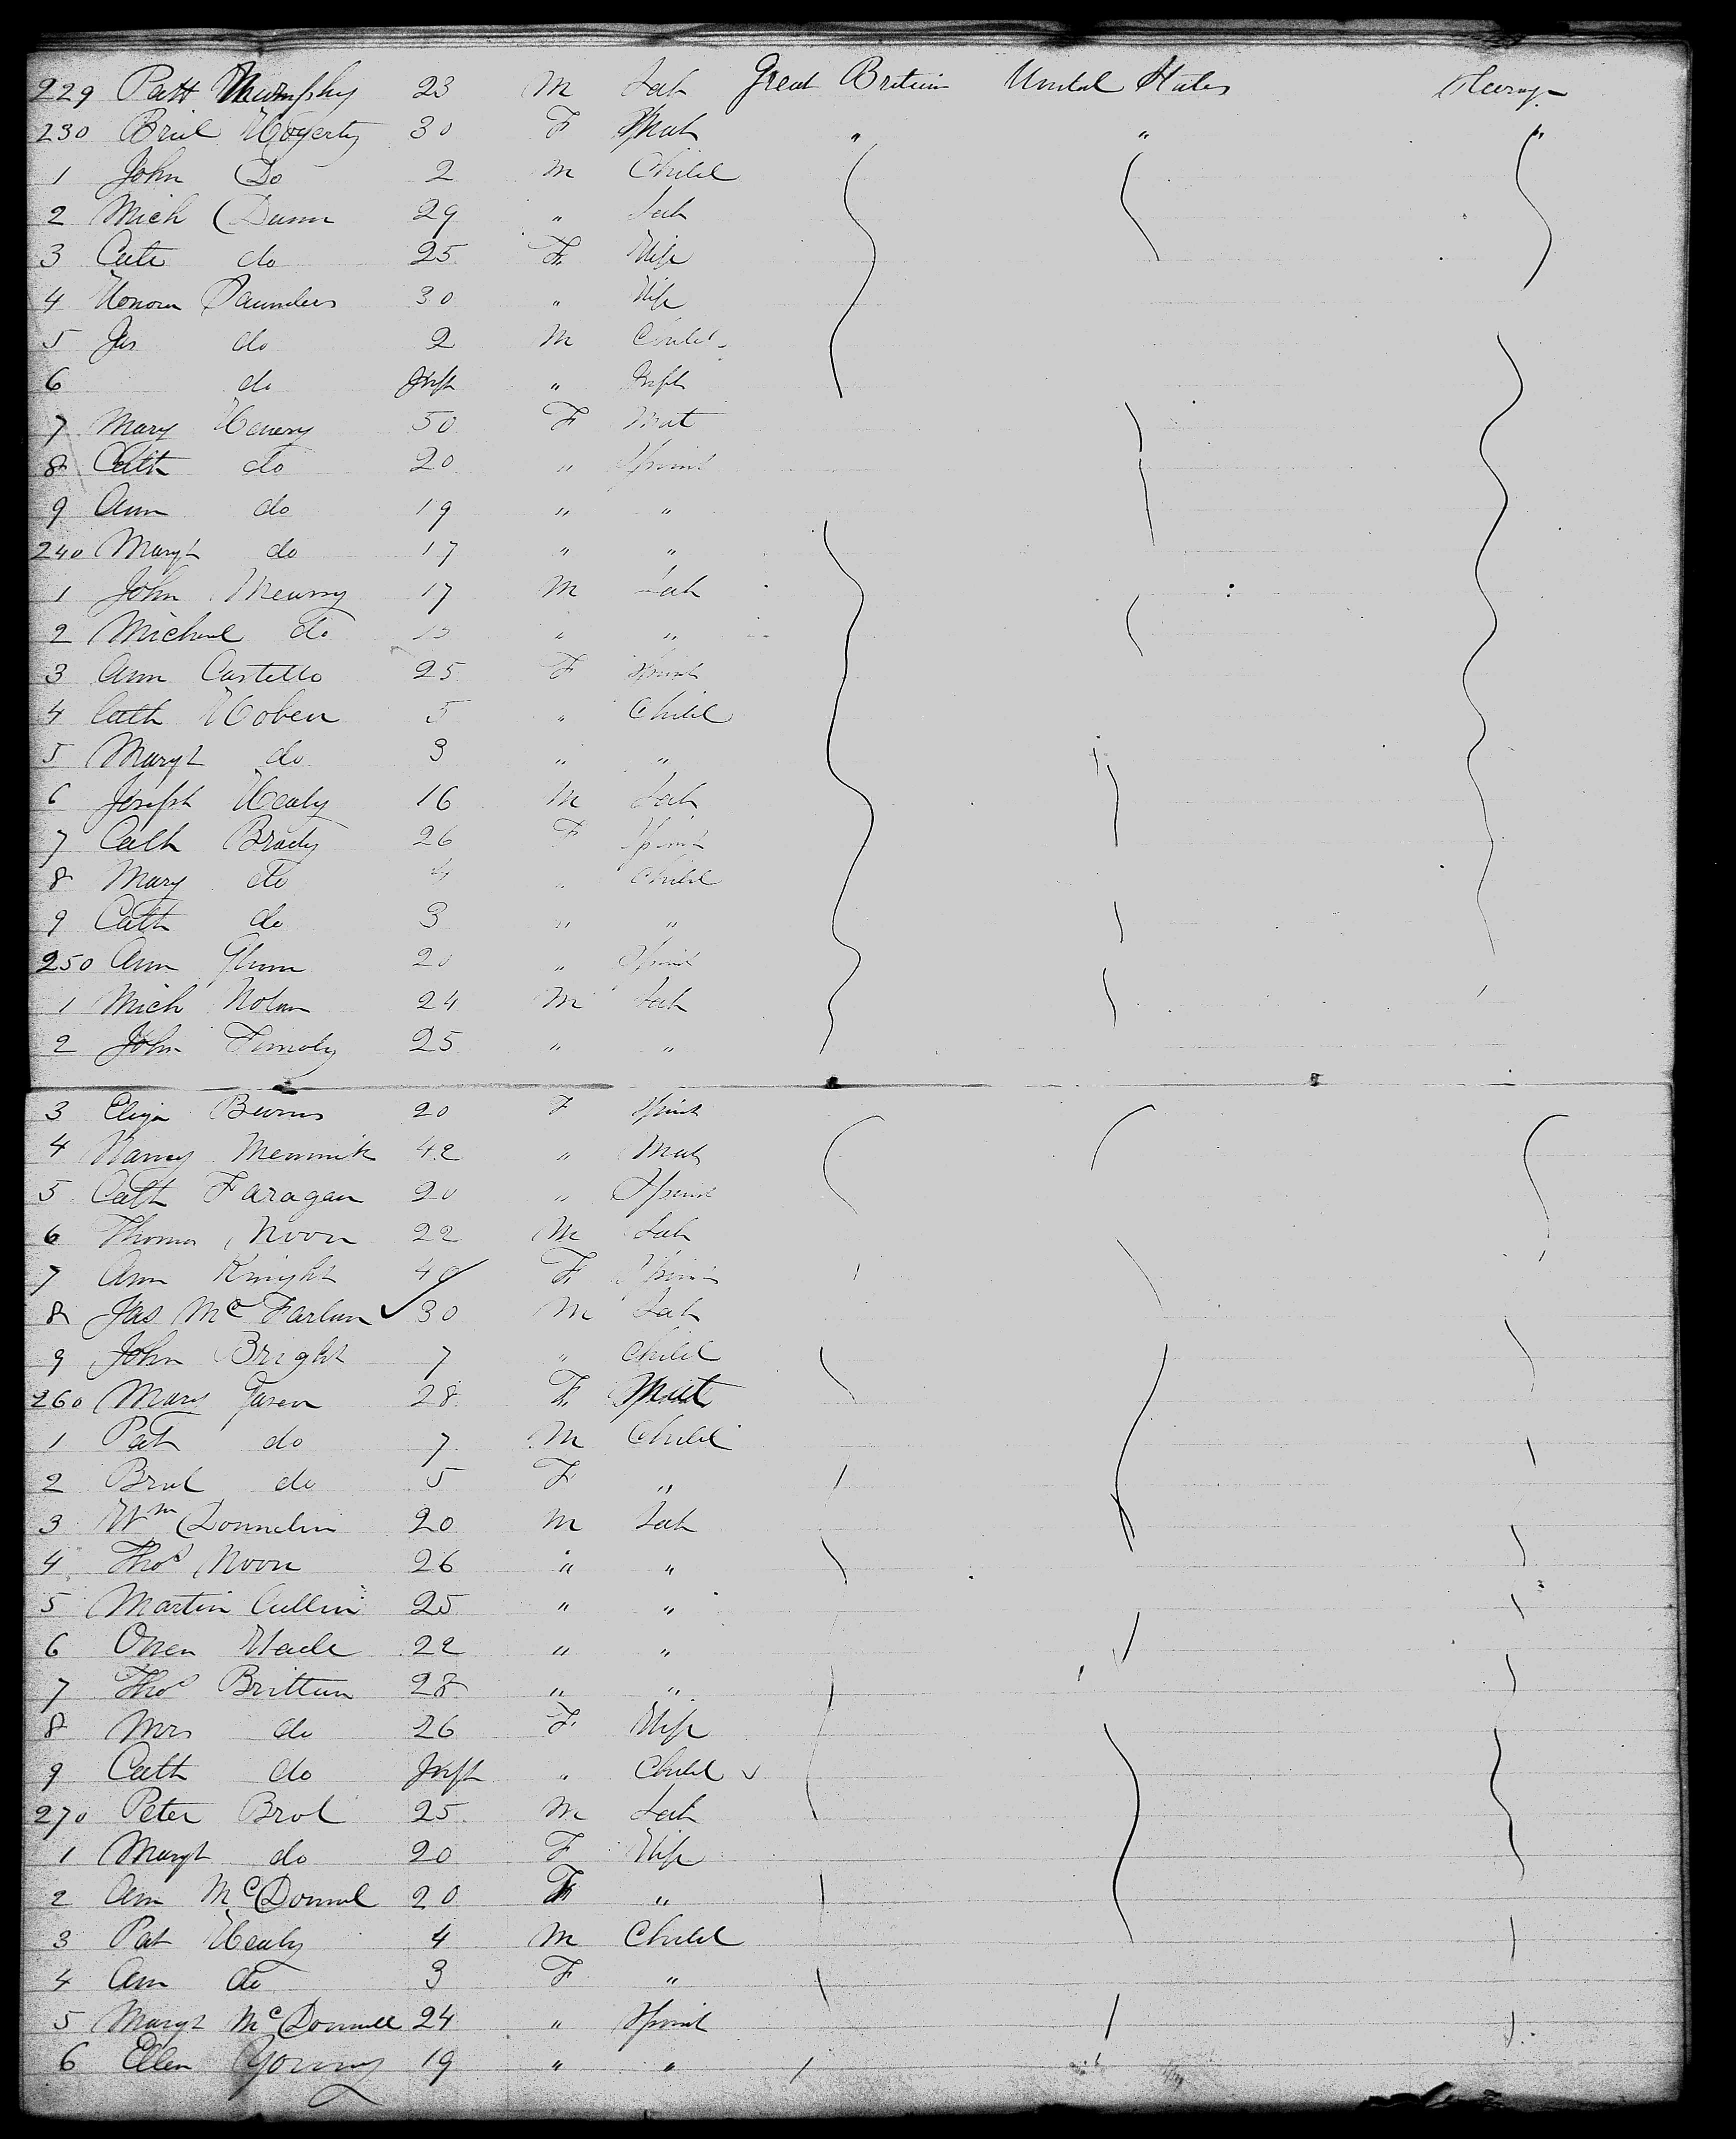 229 Patt Murphy 23 M Lab Great Britain United States Steerage
230 Brid Hogerty 30 F Mat " " "
1 John Do 2 M Child
2 Mich Dunn 29 " Lab
3 Cate do 25 F Wife
4 Honora Saunders 30 " Wife
5 Jas do 2 M Child
6 do Inft " Inft
7 Mary Henery 50 F Mat
8 Cath do 20 " Spinst
9 Ann do 19 " "
240 Margt do 17 " "
1 John 17 M Lab
2 Michael do " "
3 Ann Castello 25 F Spinst
4 Cath Hoben 5 " Child
5 Margt do 3 " "
6 Joseph Healy 16 M Lab
7 Cath Brady 26 F Spinst
8 Mary do 4 " Child
9 Cath do 3 " "
250 Ann Glunn 20 " Spinst
1 Mich Nolan 24 M Lab
2 John Timoly 25 " "
3 Eliza Burns 20 F Spinst
4 Nancy 42 " Mat
5 Cath Faragan 20 " Spinst
6 Thomas Noon 22 M Lab
7 Ann Knight 40 F Spinst
8 Jas McFarlan 30 M Lab
9 John Bright 7 " Child
260 Mary Garen 28 F Mat
1 Pat do 7 M Child
2 Brid do 5 F "
3 Wm Donnelin 20 M Lab
4 Thos Noon 26 " "
5 Martin Cullin 25 " "
6 Owen Wade 22 " "
7 Thos Brittan 28 " "
8 Mrs do 26 F Wife
9 Cath do Inft " Child
270 Peter Brol 25 M Lab
1 Margt do 20 F Wife
2 Ann McDonnel 20 F "
3 Pat Healy 4 M Child
4 Ann do 3 F "
5 Margt McDonnell 24 " Spinst
6 Ellen 19 " "